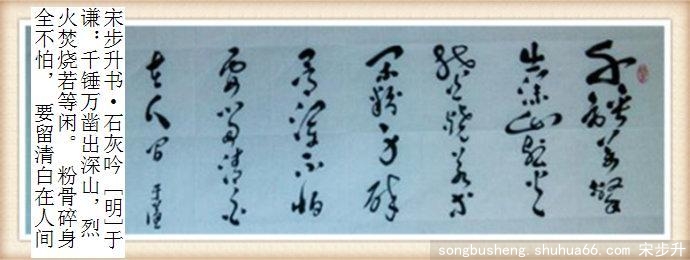 宋步升书·石灰吟 [明]于
谦:千锤万凿出深山,烈
火焚烧若等闲。 粉骨碎身
全不怕, 要留清白在人间
千锤万凿
出深山烈火
焚烧若等
闲粉身碎
骨浑不怕
要留清白
在人间 于谦
songbusheng.shuhua66.com 宋步升